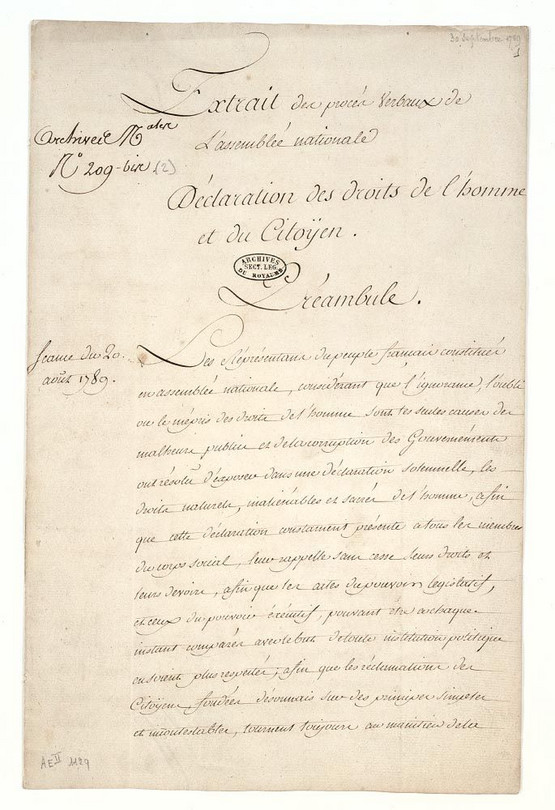 30 Septembre 1789
1
Extrait des procès Verbaux de
L'assemblée nationale
archives Nales
No 209-bis (2)
Déclaration des droits de l'homme
et du Citoÿen.
ARCHIVES
SECT. LEG.
DU ROYAUME
Préambule.
Seance du 20.
août 1789.
Les Réprésentans du peuple francais constitués
en assemblée nationale, considérant que l'ignorance, l'oubli
ou le mépris des droits de l'homme sont les seules causes des
malheurs publics et de la corruption des Gouvernéments
ont résolu d'exposer dans une déclaration solemnelle, les
droits naturels, inaliénables et sacrés de l'homme, afin
que cette déclaration constament présente a tous les membres
du corps social, leur rappelle sans cesse leurs droits et
leurs devoirs, afin que les actes du pouvoir legislatif,
et ceux du pouvoir éxécutif, pouvant etre a chaque
instant comparés avec le but de toute institution politique
en soient plus respectés; afin que les réclamations des
Citoÿens, fondées désormais sur des principes simples
et incontestables, tournent toujours au maintien de la
AE II 1129